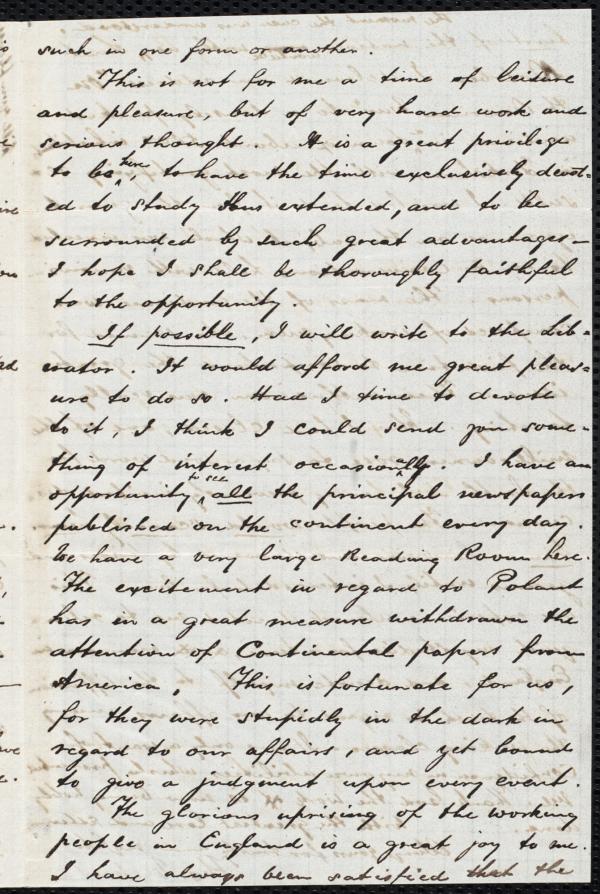 such in one form or another.
This is not for me a time of leisure
and pleasure, but of very hard work and
serious thought. It is a great privilege
to be here, to have the time exclusively devot-
ed to study thus extended, and to be
surrounded by such great advantages—
I hope I shall be thoroughly faithful
to the opportunity.
If possible, I will write to the Lib-
erator. It would afford me great pleas-
ure to do so. Had I time to devote
to it, I think I could send you some-
thing of interest occasionally. I have an
opportunity to see all the principal newspapers
published on the continent every day.
We have a very large Reading Room here.
The excitement in regard to Poland
has in a great measure withdrawn the
attention of Continental papers from
America. This is fortunate for us,
for they were stupidly in the dark in
regard to our affairs, and yet bound
to give a judgment upon every event.
The glorious uprising of the working
people in England is a great joy to me.
I have always been satisfied that the